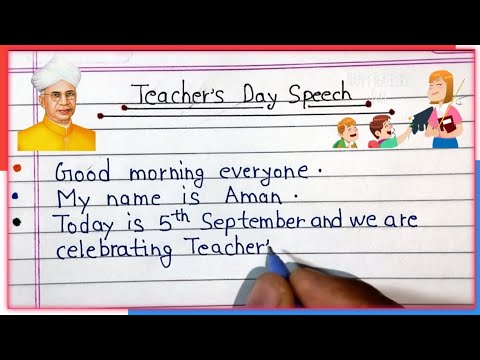 Teacher's Day Speech
Good morning everyone.
My name is Aman.
Today is 5th September and we are
celebrating Teacher'